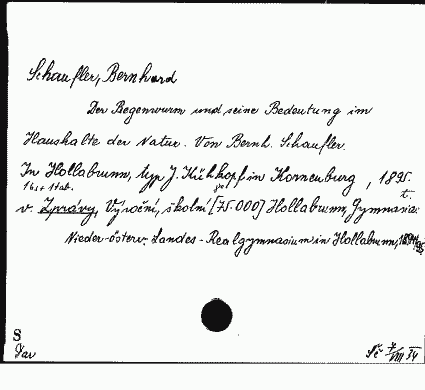 Schaufler, Bernhard
Der Regenwurm und seine Bedeutung im
Haushalte der Natur. Von Bernh. Schaufler.
In Hollabrunn, typ J. Kühkopf in Korneuburg, 1895.
1 bs + 1 tab. 8°
v. Zprávy, Výroční, školní [75.000] Hollabrunn, Gymnasia:
Nieder-österr. Landes-Realgymnasium in Hollabrunn, 1894/95
S
Jar
Sč VIII 34